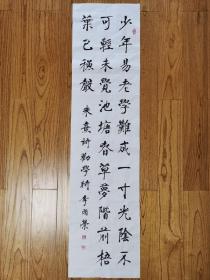 少年易老學難成一寸光陰不
可輕未覺池塘春草夢階前梧
葉已秋聲 朱熹詩勸學